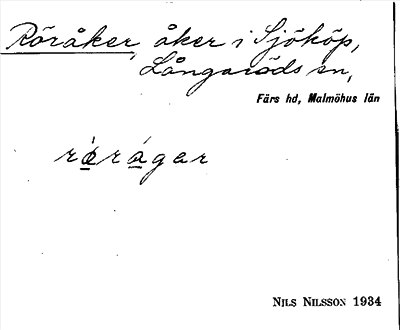 Röråker, åker i Sjököp,
Långaröds sn,
Färs hd, Malmöhus län
rø̀rágar
NILS NILSSON 1934